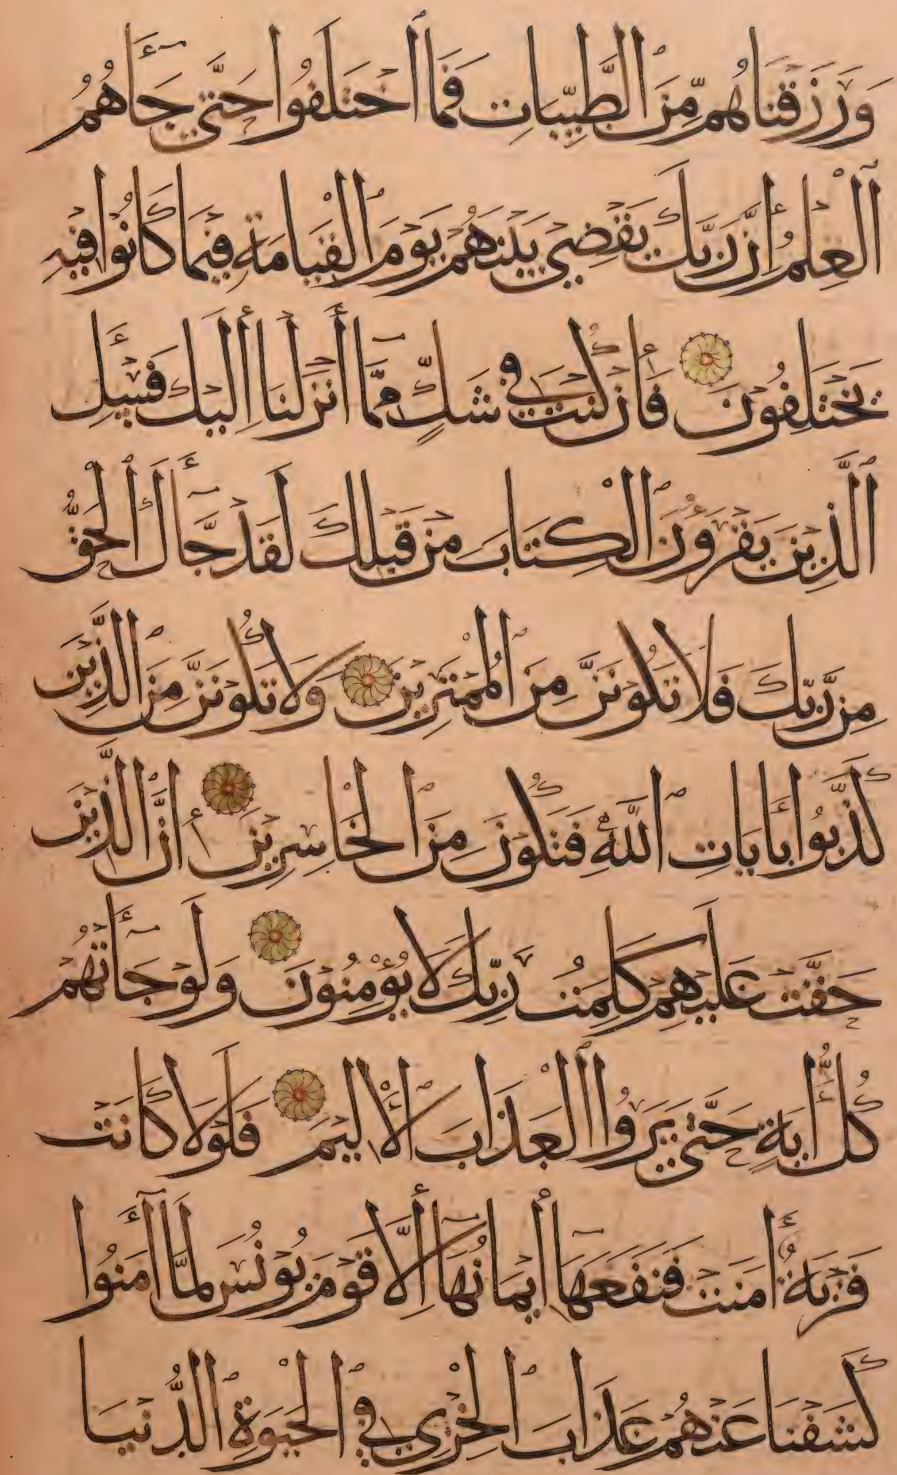 وَرَزَقْنَاهُم مِّنَ الطَّيِّبَاتِ فَمَا اخْتَلَفُوا حَتَّى جَأَهُمُ
الْعِلْمُ إِنَّ رَبَّكَ يَقْضِي بَيْنَهُمْ يَوْمَ الْقِيَامَةِ فِيمَا كَانُوا فِيهِ
يَخْتَلِفُونَ فَإِن كُنتَ فِي شَكٍّ مِّمَّا أَنزَلْنَا إِلَيْكَ فَسْـَٔلِ
الَّذِينَ يَقْرَءُونَ الْكِتَابَ مِن قَبْلِكَ لَقَدْ جَّأَكَ الْحَقُّ
مِن رَّبِّكَ فَلَا تَكُونَنَّ مِنَ الْمُمْتَرِينَ وَلَا تَكُونَنَّ مِنَ الَّذِينَ
كَذَّبُوا بِأَايَاتِ اللَّهِ فَتَكُونَ مِنَ الْخَاسِرِينَ إِنَّ الَّذِينَ
حَقَّتْ عَلَيْهِمْ كَلِمَتُ رَبِّكَ لَا يُؤْمِنُونَ وَلَوْ جَأَتْهُمْ
كُلُّ أَايَةٍ حَتَّى يَرَوُا الْعَذَابَ الْأَلِيمَ فَلَوْلَا كَانَتْ
قَرْيَةٌ أَامَنَتْ فَنَفَعَهَا إِيمَانُهَا إِلَّا قَوْمَ يُونُسَ لَمَّا أَامَنُوا
كَشَفْنَا عَنْهُمْ عَذَابَ الْخِزْيِ فِي الْحَيَوةِ الدُّنْيَا